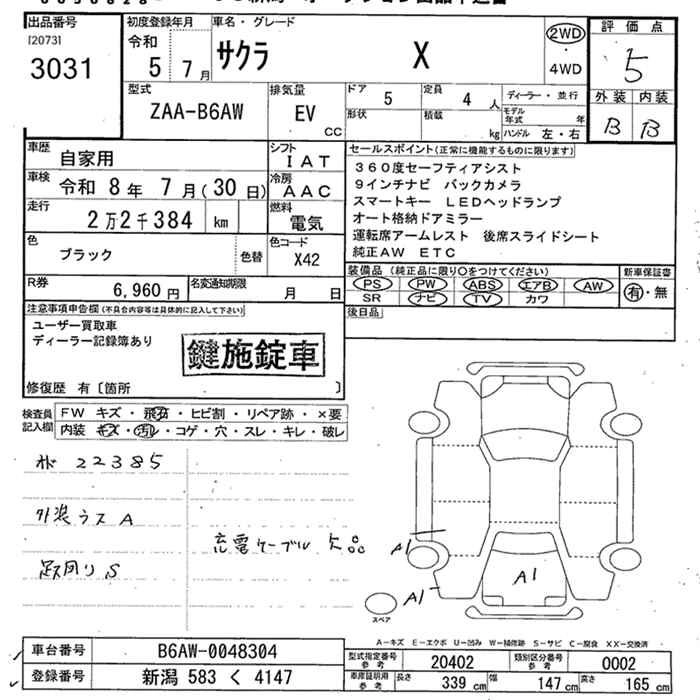 出品番号
[2073]
3031
初度登録年月
令和
5 7 月
車名・グレード
サクラ X
2WD
・
4WD
評価点
5
外装 内装
B B
型式
ZAA-B6AW
排気量
EV
CC
ドア 5
定員 4 人
形状
積載 kg
ディーラー・並行
モデル年式 年
ハンドル 左・右
車歴 自家用
シフト
IAT
車検 令和 8 年 7 月 (30 日)
冷房
AAC
走行 2万2千384 km
燃料
電気
色
ブラック
色替
色コード
X42
R券 6,960 円
名変通知期限 月 日
セールスポイント(正常に機能するものに限ります)
360度セーフティアシスト
9インチナビ バックカメラ
スマートキー LEDヘッドランプ
オート格納ドアミラー
運転席アームレスト 後席スライドシート
純正AW ETC
装備品 (純正品に限り○をつけてください)
PS PW ABS エアB AW
SR ナビ TV カワ
新車保証書
有・無
後日品
注意事項申告欄(不具合内容等は具体的に記入して下さい)
ユーザー買取車
ディーラー記録簿あり
鍵施錠車
修復歴 有〔箇所 〕
検査員
記入欄
FW キズ・飛石・ヒビ割・リペア跡・×要
内装 キズ・汚レ・コゲ・穴・スレ・キレ・破レ
22385
外装ウスA
足回りS
充電ケーブル欠品
A1
A1
A1
スペア
A-キズ E-エクボ U-凹み W-補修跡 S-サビ C-腐食 XX-交換済
車台番号 B6AW-0048304
登録番号 新潟 583 く 4147
型式指定番号
参考
20402
類別区分番号
参考
0002
車庫証明用
参考
長さ 339 cm
幅 147 cm
高さ 165 cm